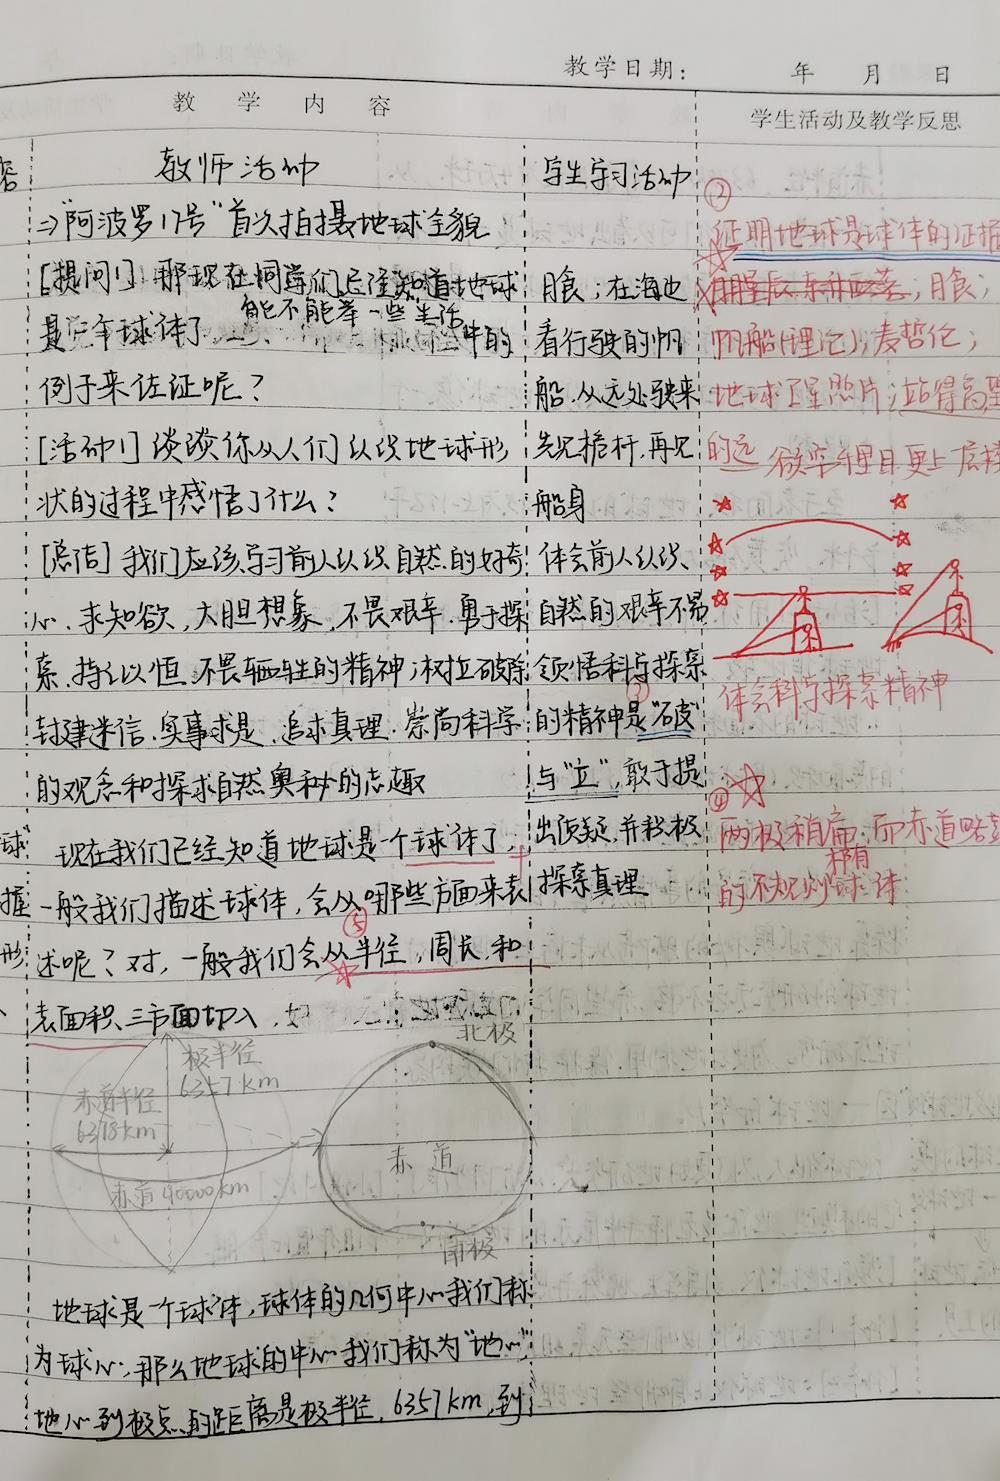 教学日期： 年 月 日
教 学 内 容
学生活动及教学反思
教师活动
⇒"阿波罗17号"首次拍摄地球全貌
[提问1] 那现在同学们已经知道地球
是一个球体了 能不能举一些生活中的
例子来佐证呢？
[活动1] 谈谈你从人们认识地球形
状的过程中感悟了什么？
[总结] 我们应该学习前人认识自然的好奇
心、求知欲，大胆想象，不畏艰辛、勇于探
索、持之以恒、不畏牺牲的精神；树立破除
封建迷信、实事求是、追求真理、崇尚科学
的观念和探求自然奥秘的志趣
现在我们已经知道地球是个球体了，
一般我们描述球体，会从哪些方面来表
述呢？对，一般我们会从半径，周长，和
⑤
表面积三方面切入，好
极半径
6357km
赤道半径
6378km
赤道40000km
北极
赤道
南极
地球是一个球体，球体的几何中心我们称
为球心，那么地球的中心我们称为"地心"
地心到极点的距离是极半径，6357km，到
球
握
形
学生学习活动
月食；在海边
看行驶的帆
船，从远处驶来
先见桅杆，再见
船身
体会前人认识
自然的艰辛不易
领悟科学探索
③
的精神是"破"
与"立"，敢于提
出质疑，并积极
探索真理
②
证明地球是球体的证据
月食；
帆船(理论)；麦哲伦；
地球卫星照片；站得高望
的远 欲穷千里目更上一层楼
体会科学探索精神
④
两极稍扁，而赤道略
稍有
的不规则球体